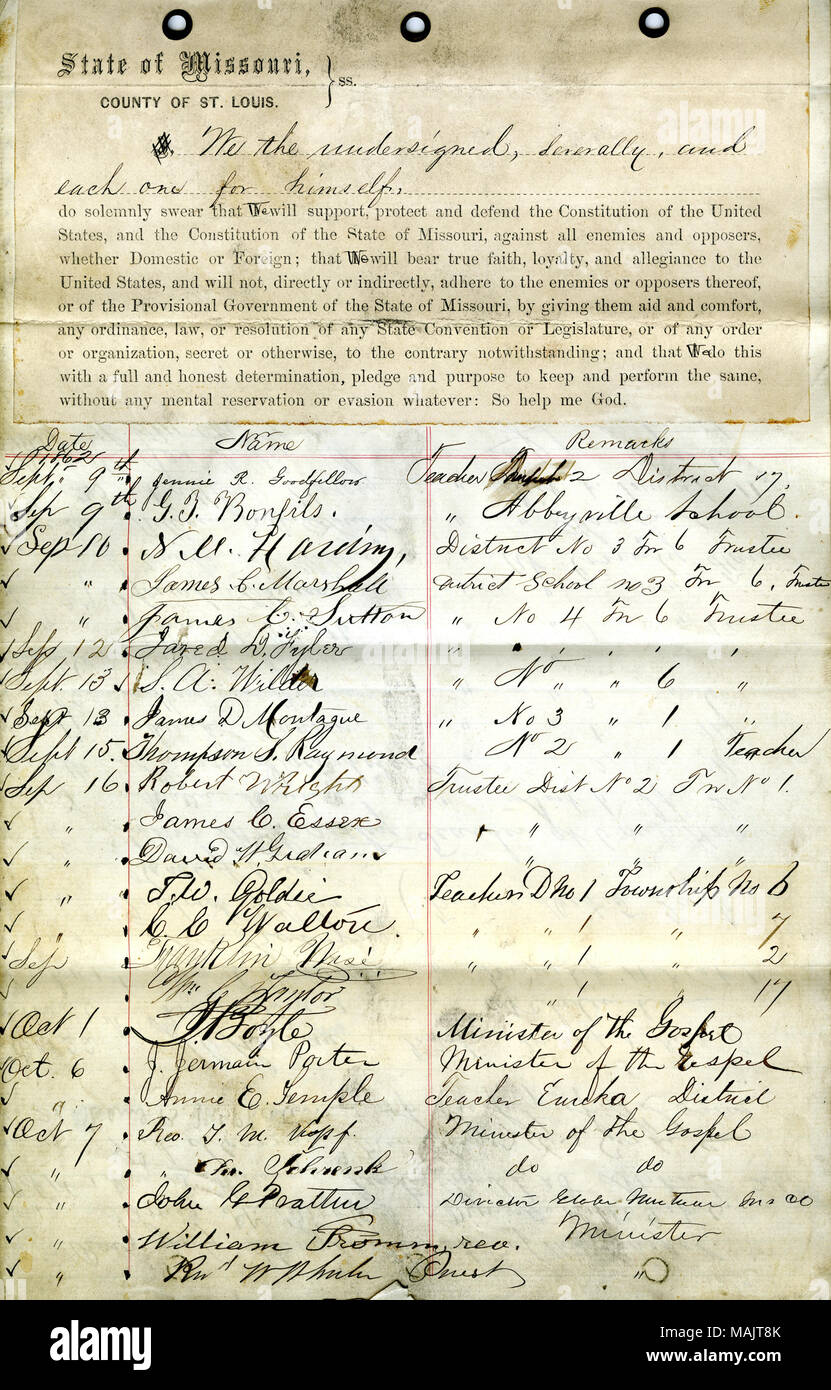 State of Missouri, } ss.
COUNTY OF ST. LOUIS.
We the undersigned, severally, and
each one for himself,
do solemnly swear that We will support, protect and defend the Constitution of the United
States, and the Constitution of the State of Missouri, against all enemies and opposers,
whether Domestic or Foreign; that We will bear true faith, loyalty, and allegiance to the
United States, and will not, directly or indirectly, adhere to the enemies or opposers thereof,
or of the Provisional Government of the State of Missouri, by giving them aid and comfort,
any ordinance, law, or resolution of any State Convention or Legislature, or of any order
or organization, secret or otherwise, to the contrary notwithstanding; and that We do this
with a full and honest determination, pledge and purpose to keep and perform the same,
without any mental reservation or evasion whatever: So help me God.
Date Name Remarks
1862
Sept. 9th Jennie R. Goodfellow Teacher 2 District 17,
Sep 9th G. F. Bonfils. " Abbeyville School.
Sep 10 N. M. Harding, District No 3 Tn 6 Trustee
" James C. Marshall District School no 3 Tn 6, Trustee
" James C. Sutton " No 4 Tn 6 Trustee
Sep 12 Jared D. Fyler " " " " "
Sept. 13 S. A. Wilder " No " 6 "
Sept 13 James D Montague " No 3 " 1 "
Sept 15. Thompson S. Raymond No 2 " 1 Teacher
Sep 16 Robert Wright Trustee Dist No 2 Tn No 1.
" James C. Essex " " "
" David W. Graham " "
" T. W. Goldie Teachers D No 1 Township No 6
" C. C. Walton. " " 1 " 7
Sep Franklin Wise " " 1 " 2
Wm C Taylor " 1 " 17
Oct 1 Boyle Minister of the Gospel
Oct. 6 J. Jermain Porter Minister of the Gospel
" Annie E. Semple Teacher Eureka District
Oct 7 Rev. T. M. Kopf. Minister of the Gospel
" " do do
" John G Prather Director Mutual Ins Co
" William Fromm, rev. Minister
" Revd W Priest "
alamy
Image ID: MAJT8K
www.alamy.com